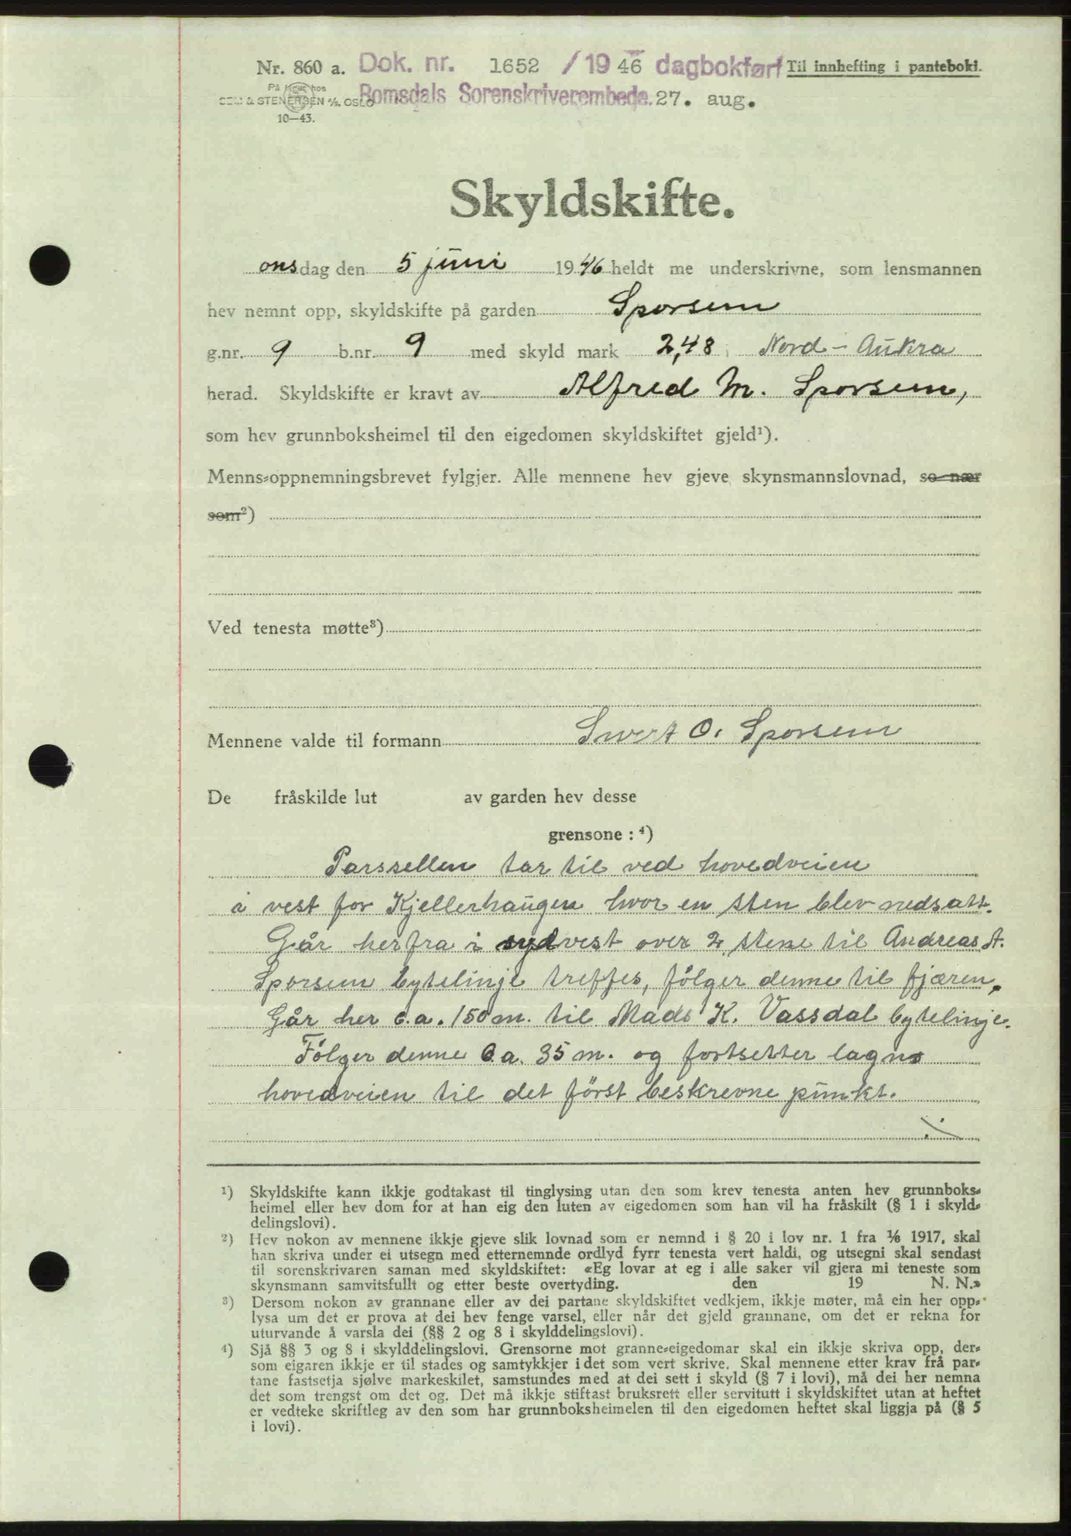 Nr. 860 a. Dok. nr. 1652 / 19 46 dagbokført Til innhefting i pantebok.
På lager hos
SEM & STENERSEN A/S. OSLO Romsdals Sorenskriverembede. 27. aug.
10—43.
Skyldskifte.
onsdag den 5 juni 1946 heldt me underskrivne, som lensmannen
hev nemnt opp, skyldskifte på garden Sporsem
g.nr. 9 b.nr. 9 med skyld mark 2,48 Nord-Aukra
herad. Skyldskifte er kravt av Alfred M. Sporsem,
som hev grunnboksheimel til den eigedomen skyldskiftet gjeld¹).
Menns-oppnemningsbrevet fylgjer. Alle mennene hev gjeve skynsmannslovnad, so nær
som²)
Ved tenesta møtte³)
Mennene valde til formann Sivert O. Sporsem
De fråskilde lut av garden hev desse
grensone : ⁴)
Parssellen tar til ved hovedveien
i vest for Kjellerhaugen hvor en sten blev nedsatt.
Går herfra i sydvest over 2 stene til Andreas A.
Sporsem bytelinje treffes, følger denne til fjæren.
Går her c.a. 150 m. til Mads K. Vassdal bytelinje.
Følger denne c a. 35 m. og fortsetter lagns
hovedveien til det først beskrevne punkt.
¹) Skyldskifte kann ikkje godtakast til tinglysing utan den som krev tenesta anten hev grunnboks-
heimel eller hev dom for at han eig den luten av eigedomen som han vil ha fråskilt (§ 1 i skyld-
delingslovi).
²) Hev nokon av mennene ikkje gjeve slik lovnad som er nemnd i § 20 i lov nr. 1 fra 1/6 1917, skal
han skriva under ei utsegn med etternemnde ordlyd fyrr tenesta vert haldi, og utsegni skal sendast
til sorenskrivaren saman med skyldskiftet: «Eg lovar at eg i alle saker vil gjera mi teneste som
skynsmann samvitsfullt og etter beste overtyding. den 19 N. N.»
³) Dersom nokon av grannane eller av dei partane skyldskiftet vedkjem, ikkje møter, må ein her opp-
lysa um det er prova at dei hev fenge varsel, eller når det gjeld grannane, om det er rekna for
uturvande å varsla dei (§§ 2 og 8 i skylddelingslovi).
⁴) Sjå §§ 3 og 8 i skylddelingslovi. Grensorne mot granne-eigedomar skal ein ikkje skriva opp, der-
som eigaren ikkje er til stades og samtykkjer i det som vert skrive. Skal mennene etter krav frå par-
tane fastsetja sjølve markeskilet, samstundes med at dei sett i skyld (§ 7 i lovi), må dei her nemna
det som trengst om det og. Det må ikkje stiftast bruksrett eller servitutt i skyldskiftet utan at heftet
er vedteke skriftleg av den som har grunnboksheimelen til den eigedomen heftet skal liggja på (§ 5
i lovi).